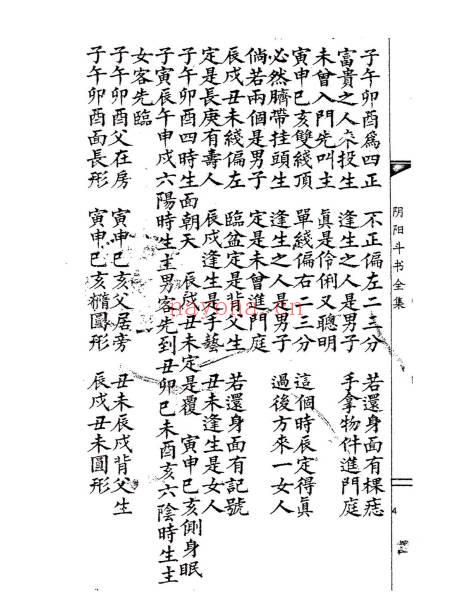 阴阳斗书全集
4
子午卯酉為四正 不正偏左二三分 若還身面有棵痣
富貴之人來投生 逢生之人是男子 手拿物件進門庭
未曾入門先叫主 真是伶俐又聰明
寅申巳亥雙綫頂 單綫偏右一二三分 這個時辰定得真
必然臍帶挂頭生 逢生之人是男子 過後方來一女人
倘若兩個是男子 定是未曾進門庭
辰戌丑未綫偏左 臨盆定是背父生 若還身面有記號
定是長庚有壽人 辰戌逢生是手藝 丑未逢生是女人
子午卯酉四時生面朝天 辰戌丑未定是覆 寅申巳亥側身眠
子寅辰午申戌六陽時生主男客先到丑卯巳未酉亥六陰時生主
女客先臨
子午卯酉父在房 寅申巳亥父居旁 丑未辰戌背父生
子午卯酉面長形 寅申巳亥橢圓形 辰戌丑未圓形
nayona.cn